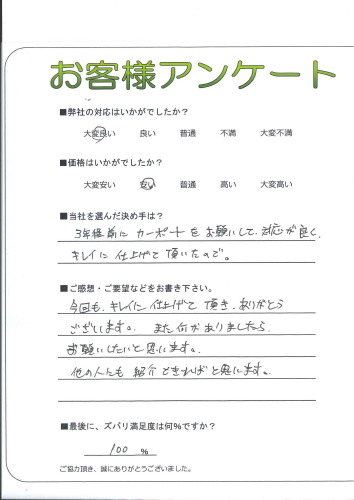 お客様アンケート
■弊社の対応はいかがでしたか？
大変良い 良い 普通 不満 大変不満
■価格はいかがでしたか？
大変安い 安い 普通 高い 大変高い
■当社を選んだ決め手は？
3年程前に カーポートを お願いして、対応が良く、
キレイに 仕上げて 頂いたので。
■ご感想・ご要望などをお書き下さい。
今回も、キレイに仕上げて 頂き、ありがとう
ございます。 また何かありましたら、
お願いしたいと思います。
他の人にも 紹介 できればと思います。
■最後に、ズバリ満足度は何％ですか？
100 ％
ご協力頂き、誠にありがとうございました。